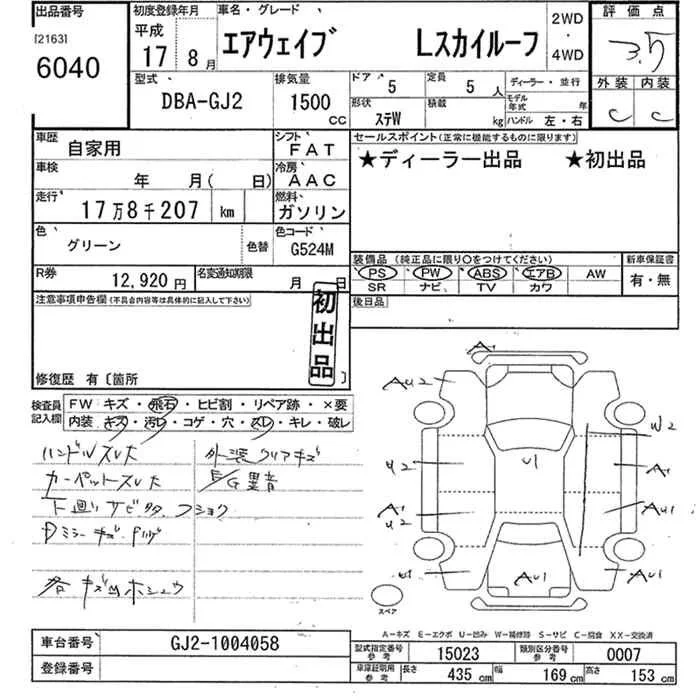 出品番号
[2163]
6040
初度登録年月
平成
17 8月
車名・グレード
エアウェイブ Lスカイルーフ
2WD
・
4WD
評価点
3.5
外装 内装
C C
型式
DBA-GJ2
排気量
1500
CC
ドア 5
定員 5 人
ディーラー・並行
形状 ステW
積載 kg
モデル年式 年
ハンドル 左・右
車歴 自家用
シフト FAT
車検 年 月( 日)
冷房 AAC
走行 17万8千207 km
燃料 ガソリン
色 グリーン
色替
色コード G524M
R券 12,920円
名変通知期限 月 日
セールスポイント(正常に機能するものに限ります)
★ディーラー出品 ★初出品
装備品 (純正品に限り○をつけてください)
PS PW ABS エアB AW
SR ナビ TV カワ
新車保証書
有・無
後日品
注意事項申告欄(不具合内容等は具体的に記入して下さい)
初出品
修復歴 有〔箇所 〕
検査員記入欄
FW キズ・飛石・ヒビ割・リペア跡・×要
内装 キズ・汚レ・コゲ・穴・スレ・キレ・破レ
ハンドルスレ大 外装クリアキズ
カーペットスレ大 E/G異音
下廻りサビ
各キズ凹ホシュウ
A1
AU2
U2
A1
U2
U1
U1
AU1
W2
A1
AU1
AU1
スペア
A-キズ E-エクボ U-凹み W-補修跡 S-サビ C-腐食 XX-交換済
車台番号 GJ2-1004058
登録番号
型式指定番号 参考 15023
類別区分番号 参考 0007
車庫証明用 参考 長さ 435 cm 幅 169 cm 高さ 153 cm